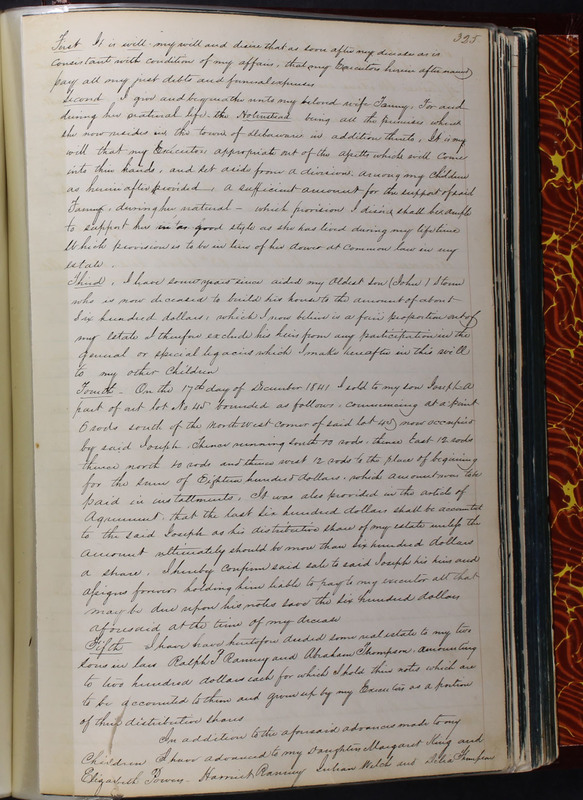 325
First It is will my will and desire that as soon after my decease as is
consistant with condition of my affairs, that my Executors herein after named
pay all my just debts and funeral expenses
Second, I give and bequeathe unto my beloved wife Fanny, For and
during her natural life, the Nolmstead being all the premises where
she now resides in the town of Delaware in addition thereto, It is my
will that my Executors appropriate out of the assetts which will come
into their hands, and set aside from a division among my children
as herein after provided, a sufficient amount for the support of said
Fanny, during her natural – which provision I desire shall be ample
to support her in as good style as she has lived during my lifetime
Which provision is to be in lieu of her dower at common law in my
estate.
Third, I have some years since aided my Oldest Son (John) Storm
who is now deceased to build his house to the amount of about
Six hundred dollars, which I now believe is a fair proportion out of
my estate I therefore exclude his heirs from any participation in the
general or special legacies which I make hereafter in this will
to my other Children
Fourth – On the 17th day of December 1841 I sold to my son Joseph A
part of out lot No 45 bounded as follows, commencing at a point
6 rods south of the north west corner of said lot (45) now occupied
by said Joseph. Thence running south 20 rods, thence East 12 rods
thence north 20 rods and thence west 12 rods to the place of begining
for the sum of Eighteen hundred dollars, which amount was to be
paid in installments, It was also provided in the article of
Agreement, that the last six hundred dollars shall be accounted
to the said Joseph as his distributive share of my estate unless the
amount ultimately should be more than six hundred dollars
a share. I hereby confirm said sale to said Joseph his heirs and
assigns forever holding him liable to pay to my executor all that
may be due upon his notes save the six hundred dollars
aforesaid at the time of my decease
Fifth I have have heretofore deeded some real estate to my two
sons in law Ralph T Ranney and Abraham Thompson amounting
to two hundred dollars each for which I hold their notes which are
to be accounted to them and given up by my Executors as a portion
of their distributive shares
In addition to the aforesaid advances made to my
Children I have advanced to my Daughters Margaret King and
Elizabeth Powers – Harriet Ranney Julian Welch and Delia Thompson